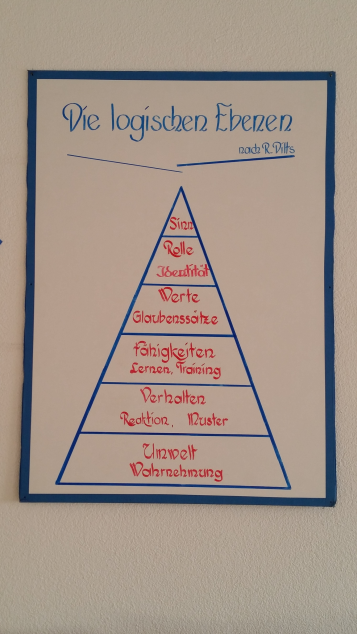 Die logischen Ebenen
nach R. Dilts
Sinn
Rolle
Identität
Werte
Glaubenssätze
Fähigkeiten
Lernen, Training
Verhalten
Reaktion, Muster
Umwelt
Wahrnehmung